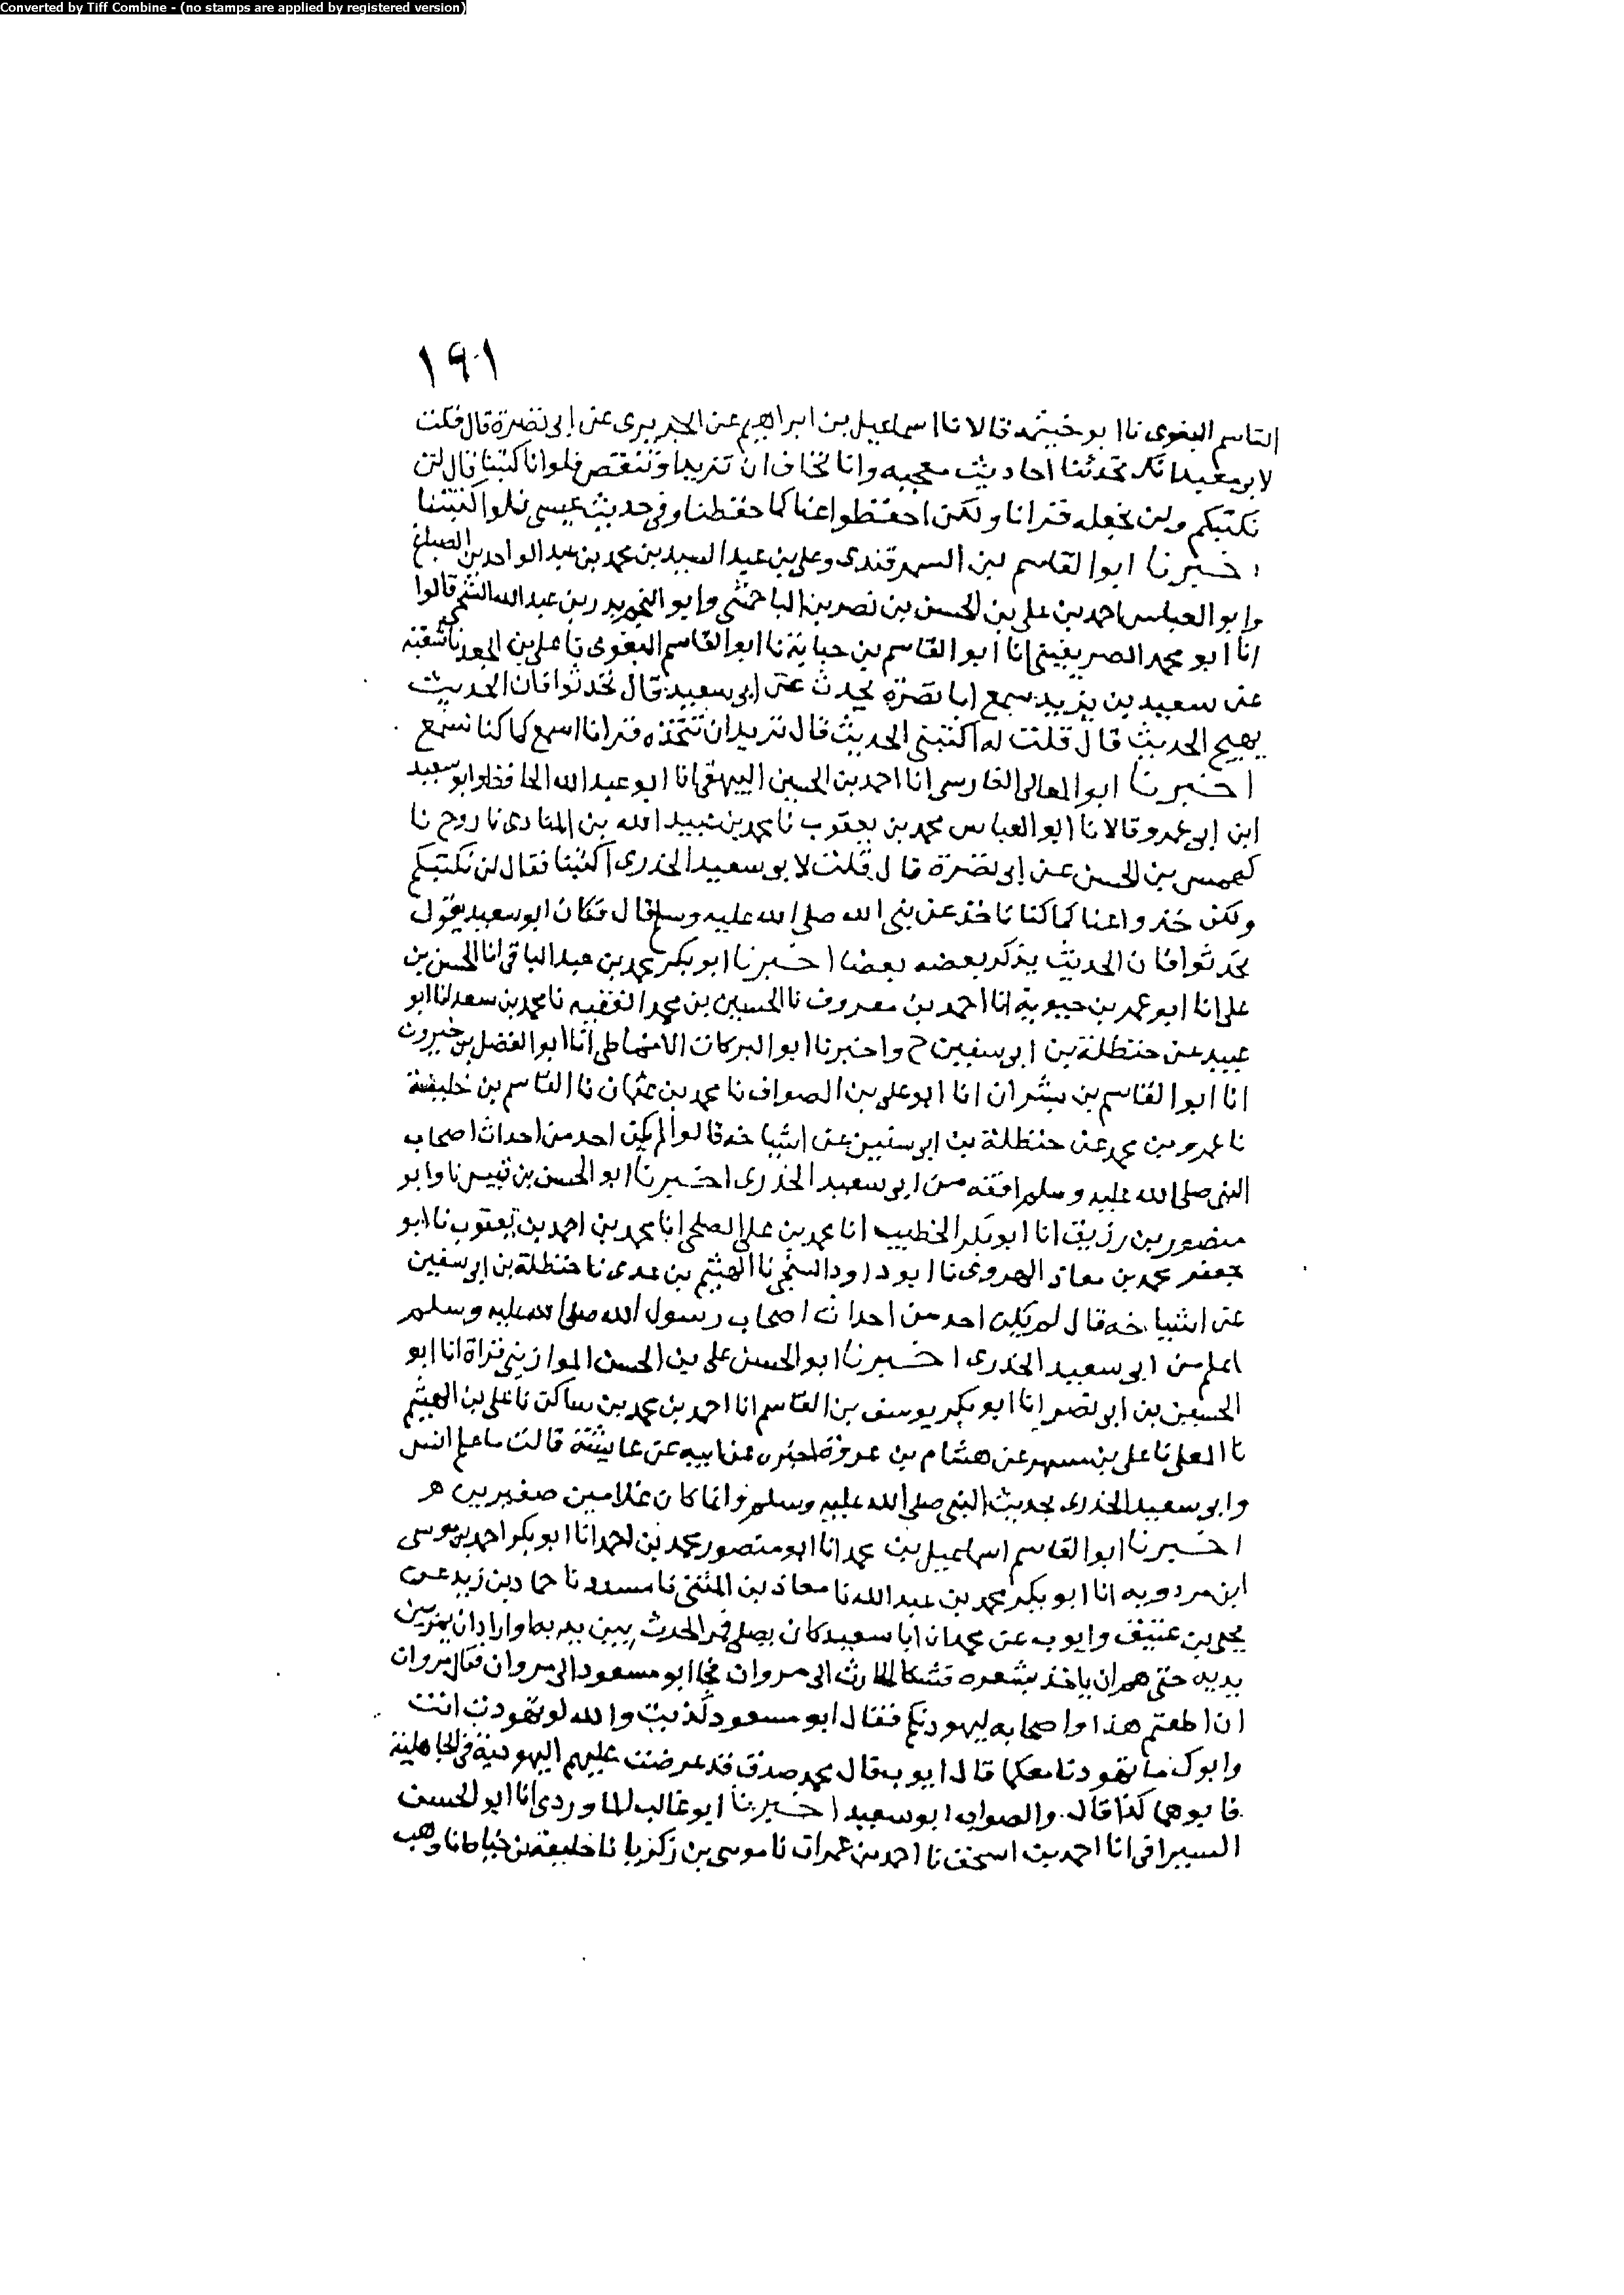 Converted by Tiff Combine - (no stamps are applied by registered version)
١٩١
القاسم البغوى نا ابو خيثمه قالا نا اسماعيل بن ابراهيم عن الجريرى عن ابى نضرة قال قلت
لابو سعيد انك تحدثنا احاديث معجبه وانا نخاف ان نزيد او ننقص فلو انا كتبنا قال لن
نكتبكم ولن نجعله قرانا ولكن احفظوا عنا كما حفظنا وفى حديث عيسى فلو اكتبتنا
اخبرنا ابو القاسم بن السمرقندى وعلى بن عبد السيد بن محمد بن عبد الواحد بن الصباغ
وابو العباس احمد بن على بن الحسن بن نصر بن الباحمشى وابو النجم بدر بن عبد الله الشيحى قالوا
انا ابو محمد الصريفينى انا ابو القاسم بن حبابة نا ابو القاسم البغوى نا على بن الجعد نا شعبة
عن سعيد بن يزيد سمع ابا نضرة يحدث عن ابى سعيد قال تحدثوا فان الحديث
يهيج الحديث قال قلت له اكتبنى الحديث قال تريد ان تتخذه قرانا اسمع كما كنا نسمع
اخبرنا ابو المعالى الفارسى انا احمد بن الحسين البيهقى انا ابو عبد الله الحافظ وابو سعيد
ابن ابى عمرو قالا نا ابو العباس محمد بن يعقوب نا محمد بن عبيد الله بن المنادى نا روح نا
كهمس بن الحسن عن ابى نضرة قال قلت لابو سعيد الخدرى اكتبنا فقال لن نكتبكم
ولكن خذوا عنا كما كنا ناخذ عن نبى الله صلى الله عليه وسلم قال فكان ابو سعيد يقول
تحدثوا فان الحديث يذكر بعضه بعضا اخبرنا ابو بكر محمد بن عبد الباقى انا الحسن بن
على انا ابو عمر بن حيوية انا احمد بن معروف نا الحسين بن محمد الفقيه نا محمد بن سعد انا ابو
عبيد عن حنظلة بن ابى سفين ح واخبرنا ابو البركات الانماطى انا ابو الفضل بن خيرون
انا ابو القاسم بن بشران انا ابو على بن الصواف نا محمد بن عثمان نا القاسم بن خليفة
نا عمرو بن محمد عن حنظلة بن ابى سفين عن اشياخه قالوا لم يكن احد من احداث اصحاب
النبى صلى الله عليه وسلم افقه من ابى سعيد الخدرى اخبرنا ابو الحسن بن قبيس نا وابو
منصور بن رزيق انا ابو بكر الخطيب انا محمد بن على الصلحى انا محمد بن احمد بن يعقوب نا ابو
جعفر محمد بن معاذ الهروى نا ابو داود السنجى نا الهيثم بن عدى نا حنظلة بن ابى سفين
عن اشياخه قال لم يكن احد من احداث اصحاب رسول الله صلى الله عليه وسلم
اعلم من ابى سعيد الخدرى اخبرنا ابو الحسن على بن الحسن الموازينى قراة انا ابو
الحسين بن ابى نصر انا ابو بكر يوسف بن القاسم انا احمد بن محمد بن ساكن نا على بن الهيثم
نا المعلى نا على بن مسهر عن هشام بن عروة اخبره عن ابيه عن عايشة قالت ما علم انس
وابو سعيد الخدرى بحديث النبى صلى الله عليه وسلم وانما كان غلامين صغيرين هـ
اخبرنا ابو القاسم اسماعيل بن محمد انا ابو منصور محمد بن احمد انا ابو بكر احمد بن موسى
ابن مردويه انا ابو بكر محمد بن عبد الله نا معاذ بن المثنى نا مسدد نا حماد بن زيد عن
يحيى بن عتيق وايوب عن محمد ان ابا سعيد كان يصلى فمر الحرث بين يديه واراد ان يمر بين
يديه حتى هم ان ياخذ بشعره فشكا الحارث الى مروان فجا ابو مسعود الى مروان فقال مروان
ان اطعتم هذا واصحابه ليهودنكم فقال ابو مسعود كذبت والله لو تهودت انت
وابوك ما تهودنا معكما قال ايوب قال محمد صدق قد عرضت عليهم اليهودية فى الجاهلية
فابوها كذا قال والصواب ابو سعيد اخبرنا ابو غالب الماوردى انا ابو الحسن
السيرافى انا احمد بن اسحق نا احمد بن عمران نا موسى بن زكريا نا خليفة بن خياط نا وهب